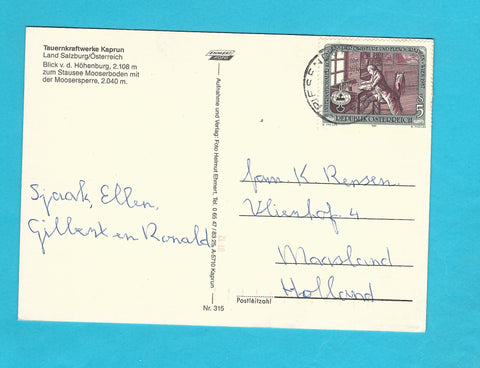 Tauernkraftwerke Kaprun
Land Salzburg/Österreich
Blick v. d. Höhenburg, 2.108 m
zum Stausee Mooserboden mit
der Moosersperre, 2.040 m.
Sjaak, Ellen,
Gilbert en Ronald
Aufnahme und Verlag: Foto Helmut Ehmert, Tel. 0 65 47 / 83 25, A-5710 Kaprun
Nr. 315
5
REPUBLIK ÖSTERREICH
Fam. K Rensen.
Vlienhof 4
Maasland
Holland
Postleitzahl